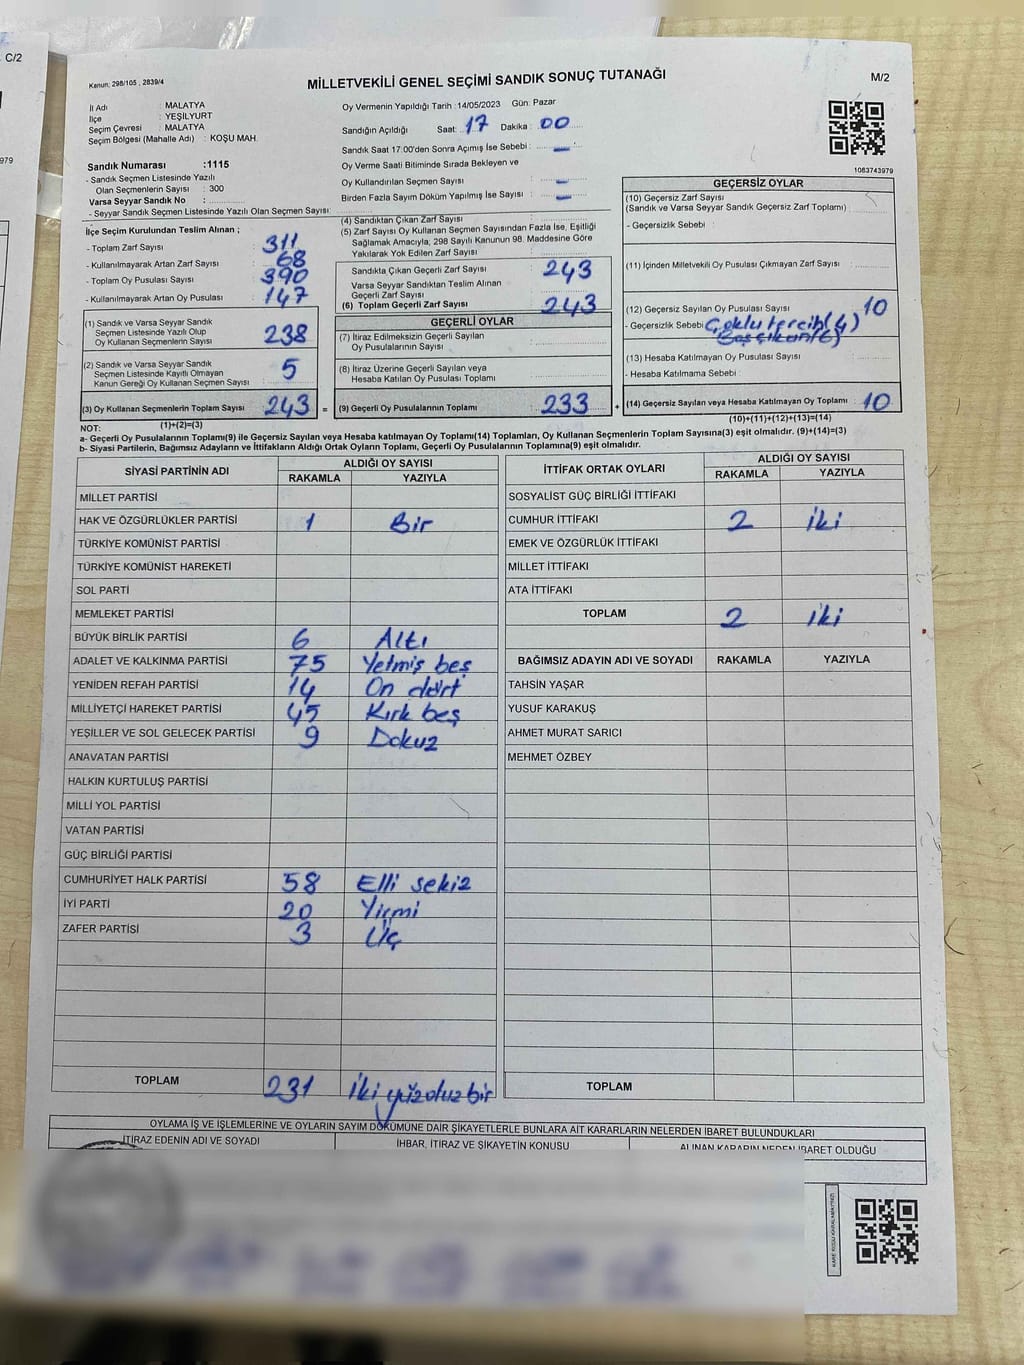 C/2
979
Kanun: 298/105 , 2839/4
MİLLETVEKİLİ GENEL SEÇİMİ SANDIK SONUÇ TUTANAĞI
M/2
İl Adı : MALATYA
İlçe : YEŞİLYURT
Seçim Çevresi : MALATYA
Seçim Bölgesi (Mahalle Adı) : KOŞU MAH.
Sandık Numarası :1115
- Sandık Seçmen Listesinde Yazılı
Olan Seçmenlerin Sayısı : 300
Varsa Seyyar Sandık No :
- Seyyar Sandık Seçmen Listesinde Yazılı Olan Seçmen Sayısı:
Oy Vermenin Yapıldığı Tarih :14/05/2023 Gün: Pazar
Sandığın Açıldığı Saat: 17 Dakika : 00
Sandık Saat 17:00'den Sonra Açımış İse Sebebi : –
Oy Verme Saati Bitiminde Sırada Bekleyen ve
Oy Kullandırılan Seçmen Sayısı : –
Birden Fazla Sayım Döküm Yapılmış İse Sayısı : –
1083743979
İlçe Seçim Kurulundan Teslim Alınan ;
- Toplam Zarf Sayısı : 311
- Kullanılmayarak Artan Zarf Sayısı : 68
- Toplam Oy Pusulası Sayısı : 390
- Kullanılmayarak Artan Oy Pusulası : 147
(1) Sandık ve Varsa Seyyar Sandık
Seçmen Listesinde Yazılı Olup
Oy Kullanan Seçmenlerin Sayısı : 238
(2) Sandık ve Varsa Seyyar Sandık
Seçmen Listesinde Kayıtlı Olmayan
Kanun Gereği Oy Kullanan Seçmen Sayısı : 5
(3) Oy Kullanan Seçmenlerin Toplam Sayısı : 243 =
(1)+(2)=(3)
(4) Sandıktan Çıkan Zarf Sayısı :
(5) Zarf Sayısı Oy Kullanan Seçmen Sayısından Fazla İse, Eşitliği
Sağlamak Amacıyla; 298 Sayılı Kanunun 98. Maddesine Göre
Yakılarak Yok Edilen Zarf Sayısı :
Sandıkta Çıkan Geçerli Zarf Sayısı : 243
Varsa Seyyar Sandıktan Teslim Alınan
Geçerli Zarf Sayısı :
(6) Toplam Geçerli Zarf Sayısı : 243
GEÇERLİ OYLAR
(7) İtiraz Edilmeksizin Geçerli Sayılan
Oy Pusulalarının Sayısı :
(8) İtiraz Üzerine Geçerli Sayılan veya
Hesaba Katılan Oy Pusulası Toplamı :
(9) Geçerli Oy Pusulalarının Toplamı : 233 +
GEÇERSİZ OYLAR
(10) Geçersiz Zarf Sayısı
(Sandık ve Varsa Seyyar Sandık Geçersiz Zarf Toplamı) :
- Geçersizlik Sebebi :
(11) İçinden Milletvekili Oy Pusulası Çıkmayan Zarf Sayısı :
(12) Geçersiz Sayılan Oy Pusulası Sayısı : 10
- Geçersizlik Sebebi : Çoklu tercih(4)
Boş çıkan(6)
(13) Hesaba Katılmayan Oy Pusulası Sayısı :
- Hesaba Katılmama Sebebi :
(14) Geçersiz Sayılan veya Hesaba Katılmayan Oy Toplamı : 10
(10)+(11)+(12)+(13)=(14)
NOT:
a- Geçerli Oy Pusulalarının Toplamı(9) ile Geçersiz Sayılan veya Hesaba katılmayan Oy Toplamı(14) Toplamları, Oy Kullanan Seçmenlerin Toplam Sayısına(3) eşit olmalıdır. (9)+(14)=(3)
b- Siyasi Partilerin, Bağımsız Adayların ve İttifakların Aldığı Ortak Oyların Toplamı, Geçerli Oy Pusulalarının Toplamına(9) eşit olmalıdır.
SİYASİ PARTİNİN ADI ALDIĞI OY SAYISI
RAKAMLA YAZIYLA
MİLLET PARTİSİ
HAK VE ÖZGÜRLÜKLER PARTİSİ 1 Bir
TÜRKİYE KOMÜNİST PARTİSİ
TÜRKİYE KOMÜNİST HAREKETİ
SOL PARTİ
MEMLEKET PARTİSİ
BÜYÜK BİRLİK PARTİSİ 6 Altı
ADALET VE KALKINMA PARTİSİ 75 Yetmiş beş
YENİDEN REFAH PARTİSİ 14 On dört
MİLLİYETÇİ HAREKET PARTİSİ 45 Kırk beş
YEŞİLLER VE SOL GELECEK PARTİSİ 9 Dokuz
ANAVATAN PARTİSİ
HALKIN KURTULUŞ PARTİSİ
MİLLİ YOL PARTİSİ
VATAN PARTİSİ
GÜÇ BİRLİĞİ PARTİSİ
CUMHURİYET HALK PARTİSİ 58 Elli sekiz
İYİ PARTİ 20 Yirmi
ZAFER PARTİSİ 3 Üç
TOPLAM 231 İki yüz otuz bir
İTTİFAK ORTAK OYLARI ALDIĞI OY SAYISI
RAKAMLA YAZIYLA
SOSYALİST GÜÇ BİRLİĞİ İTTİFAKI
CUMHUR İTTİFAKI 2 iki
EMEK VE ÖZGÜRLÜK İTTİFAKI
MİLLET İTTİFAKI
ATA İTTİFAKI
TOPLAM 2 iki
BAĞIMSIZ ADAYIN ADI VE SOYADI RAKAMLA YAZIYLA
TAHSİN YAŞAR
YUSUF KARAKUŞ
AHMET MURAT SARICI
MEHMET ÖZBEY
TOPLAM
OYLAMA İŞ VE İŞLEMLERİNE VE OYLARIN SAYIM DÖKÜMÜNE DAİR ŞİKAYETLERLE BUNLARA AİT KARARLARIN NELERDEN İBARET BULUNDUKLARI
İTİRAZ EDENİN ADI VE SOYADI İHBAR, İTİRAZ VE ŞİKAYETİN KONUSU ALINAN KARARIN NEDEN İBARET OLDUĞU